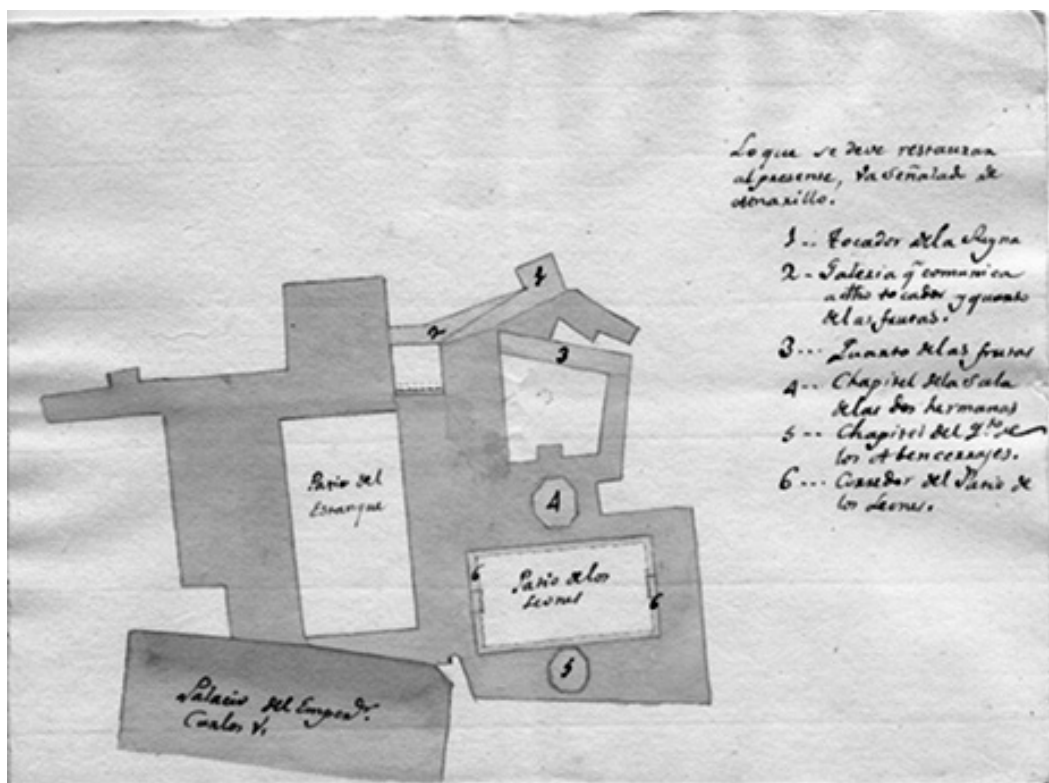 Lo que se deve restaurar
al presente, va señalad de
amarillo.
1 -- Tocador de la Reyna
2 - Galeria q̃ comunica
a dho tocador y quarto
de las frutas.
3 --- Quarto de las frutas
4 -- Chapitel de la Sala
de las dos hermanas
5 -- Chapitel del Q.to de
los Abencerrajes.
6 --- Corredor del Patio de
los Leones.
1
2
3
Patio del
Estanque
4
6
Patio de los
Leones
6
5
Palacio del Emperdr.
Carlos V.